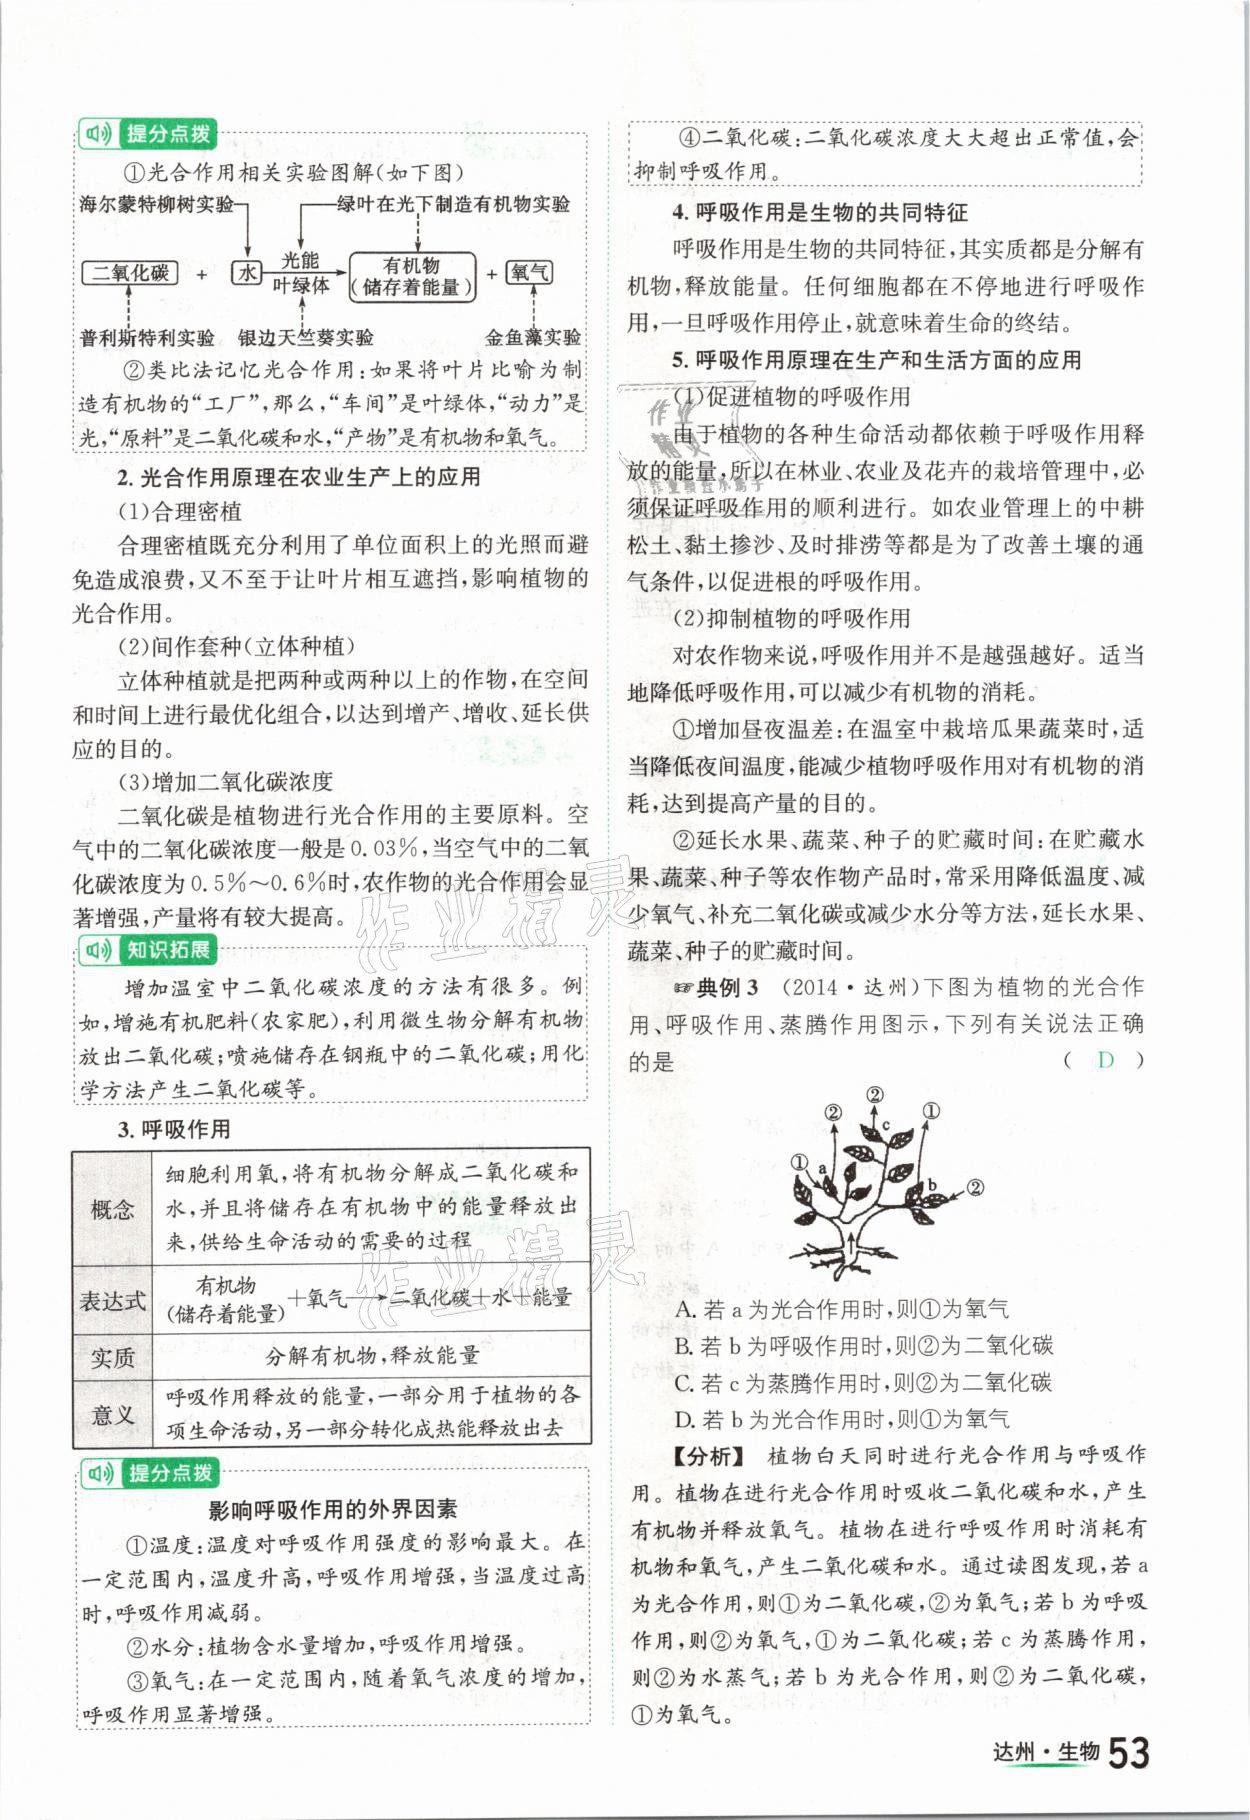 提分点拨
①光合作用相关实验图解(如下图)
海尔蒙特柳树实验 绿叶在光下制造有机物实验
二氧化碳 + 水 光能 叶绿体 有机物(储存着能量) + 氧气
普利斯特利实验 银边天竺葵实验 金鱼藻实验
②类比法记忆光合作用:如果将叶片比喻为制
造有机物的“工厂”,那么,“车间”是叶绿体,“动力”是
光,“原料”是二氧化碳和水,“产物”是有机物和氧气。
2. 光合作用原理在农业生产上的应用
(1)合理密植
合理密植既充分利用了单位面积上的光照而避
免造成浪费,又不至于让叶片相互遮挡,影响植物的
光合作用。
(2)间作套种(立体种植)
立体种植就是把两种或两种以上的作物,在空间
和时间上进行最优化组合,以达到增产、增收、延长供
应的目的。
(3)增加二氧化碳浓度
二氧化碳是植物进行光合作用的主要原料。空
气中的二氧化碳浓度一般是0.03%,当空气中的二氧
化碳浓度为0.5%~0.6%时,农作物的光合作用会显
著增强,产量将有较大提高。
知识拓展
增加温室中二氧化碳浓度的方法有很多。例
如,增施有机肥料(农家肥),利用微生物分解有机物
放出二氧化碳;喷施储存在钢瓶中的二氧化碳;用化
学方法产生二氧化碳等。
3. 呼吸作用
概念
细胞利用氧,将有机物分解成二氧化碳和
水,并且将储存在有机物中的能量释放出
来,供给生命活动的需要的过程
表达式
有机物
(储存着能量)+氧气→二氧化碳+水+能量
实质
分解有机物,释放能量
意义
呼吸作用释放的能量,一部分用于植物的各
项生命活动,另一部分转化成热能释放出去
提分点拨
影响呼吸作用的外界因素
①温度:温度对呼吸作用强度的影响最大。在
一定范围内,温度升高,呼吸作用增强,当温度过高
时,呼吸作用减弱。
②水分:植物含水量增加,呼吸作用增强。
③氧气:在一定范围内,随着氧气浓度的增加,
呼吸作用显著增强。
④二氧化碳:二氧化碳浓度大大超出正常值,会
抑制呼吸作用。
4. 呼吸作用是生物的共同特征
呼吸作用是生物的共同特征,其实质都是分解有
机物,释放能量。任何细胞都在不停地进行呼吸作
用,一旦呼吸作用停止,就意味着生命的终结。
5. 呼吸作用原理在生产和生活方面的应用
(1)促进植物的呼吸作用
由于植物的各种生命活动都依赖于呼吸作用释
放的能量,所以在林业、农业及花卉的栽培管理中,必
须保证呼吸作用的顺利进行。如农业管理上的中耕
松土、黏土掺沙、及时排涝等都是为了改善土壤的通
气条件,以促进根的呼吸作用。
(2)抑制植物的呼吸作用
对农作物来说,呼吸作用并不是越强越好。适当
地降低呼吸作用,可以减少有机物的消耗。
①增加昼夜温差:在温室中栽培瓜果蔬菜时,适
当降低夜间温度,能减少植物呼吸作用对有机物的消
耗,达到提高产量的目的。
②延长水果、蔬菜、种子的贮藏时间:在贮藏水
果、蔬菜、种子等农作物产品时,常采用降低温度、减
少氧气、补充二氧化碳或减少水分等方法,延长水果、
蔬菜、种子的贮藏时间。
☞典例3 (2014·达州)下图为植物的光合作
用、呼吸作用、蒸腾作用图示,下列有关说法正确
的是 ( D )
② ② ①
① a c b ②
A. 若a为光合作用时,则①为氧气
B. 若b为呼吸作用时,则②为二氧化碳
C. 若c为蒸腾作用时,则②为二氧化碳
D. 若b为光合作用时,则①为氧气
【分析】 植物白天同时进行光合作用与呼吸作
用。植物在进行光合作用时吸收二氧化碳和水,产生
有机物并释放氧气。植物在进行呼吸作用时消耗有
机物和氧气,产生二氧化碳和水。通过读图发现,若a
为光合作用,则①为二氧化碳,②为氧气;若b为呼吸
作用,则②为氧气,①为二氧化碳;若c为蒸腾作用,
则②为水蒸气;若b为光合作用,则②为二氧化碳,
①为氧气。
达州·生物 53
作业精灵
作业精灵